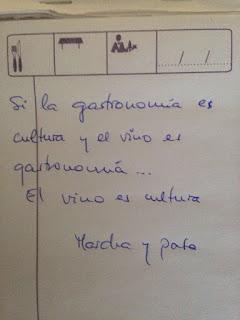 / /
Si la gastronomía es
cultura y el vino es
gastronomía...
El vino es cultura
Marcha y paso